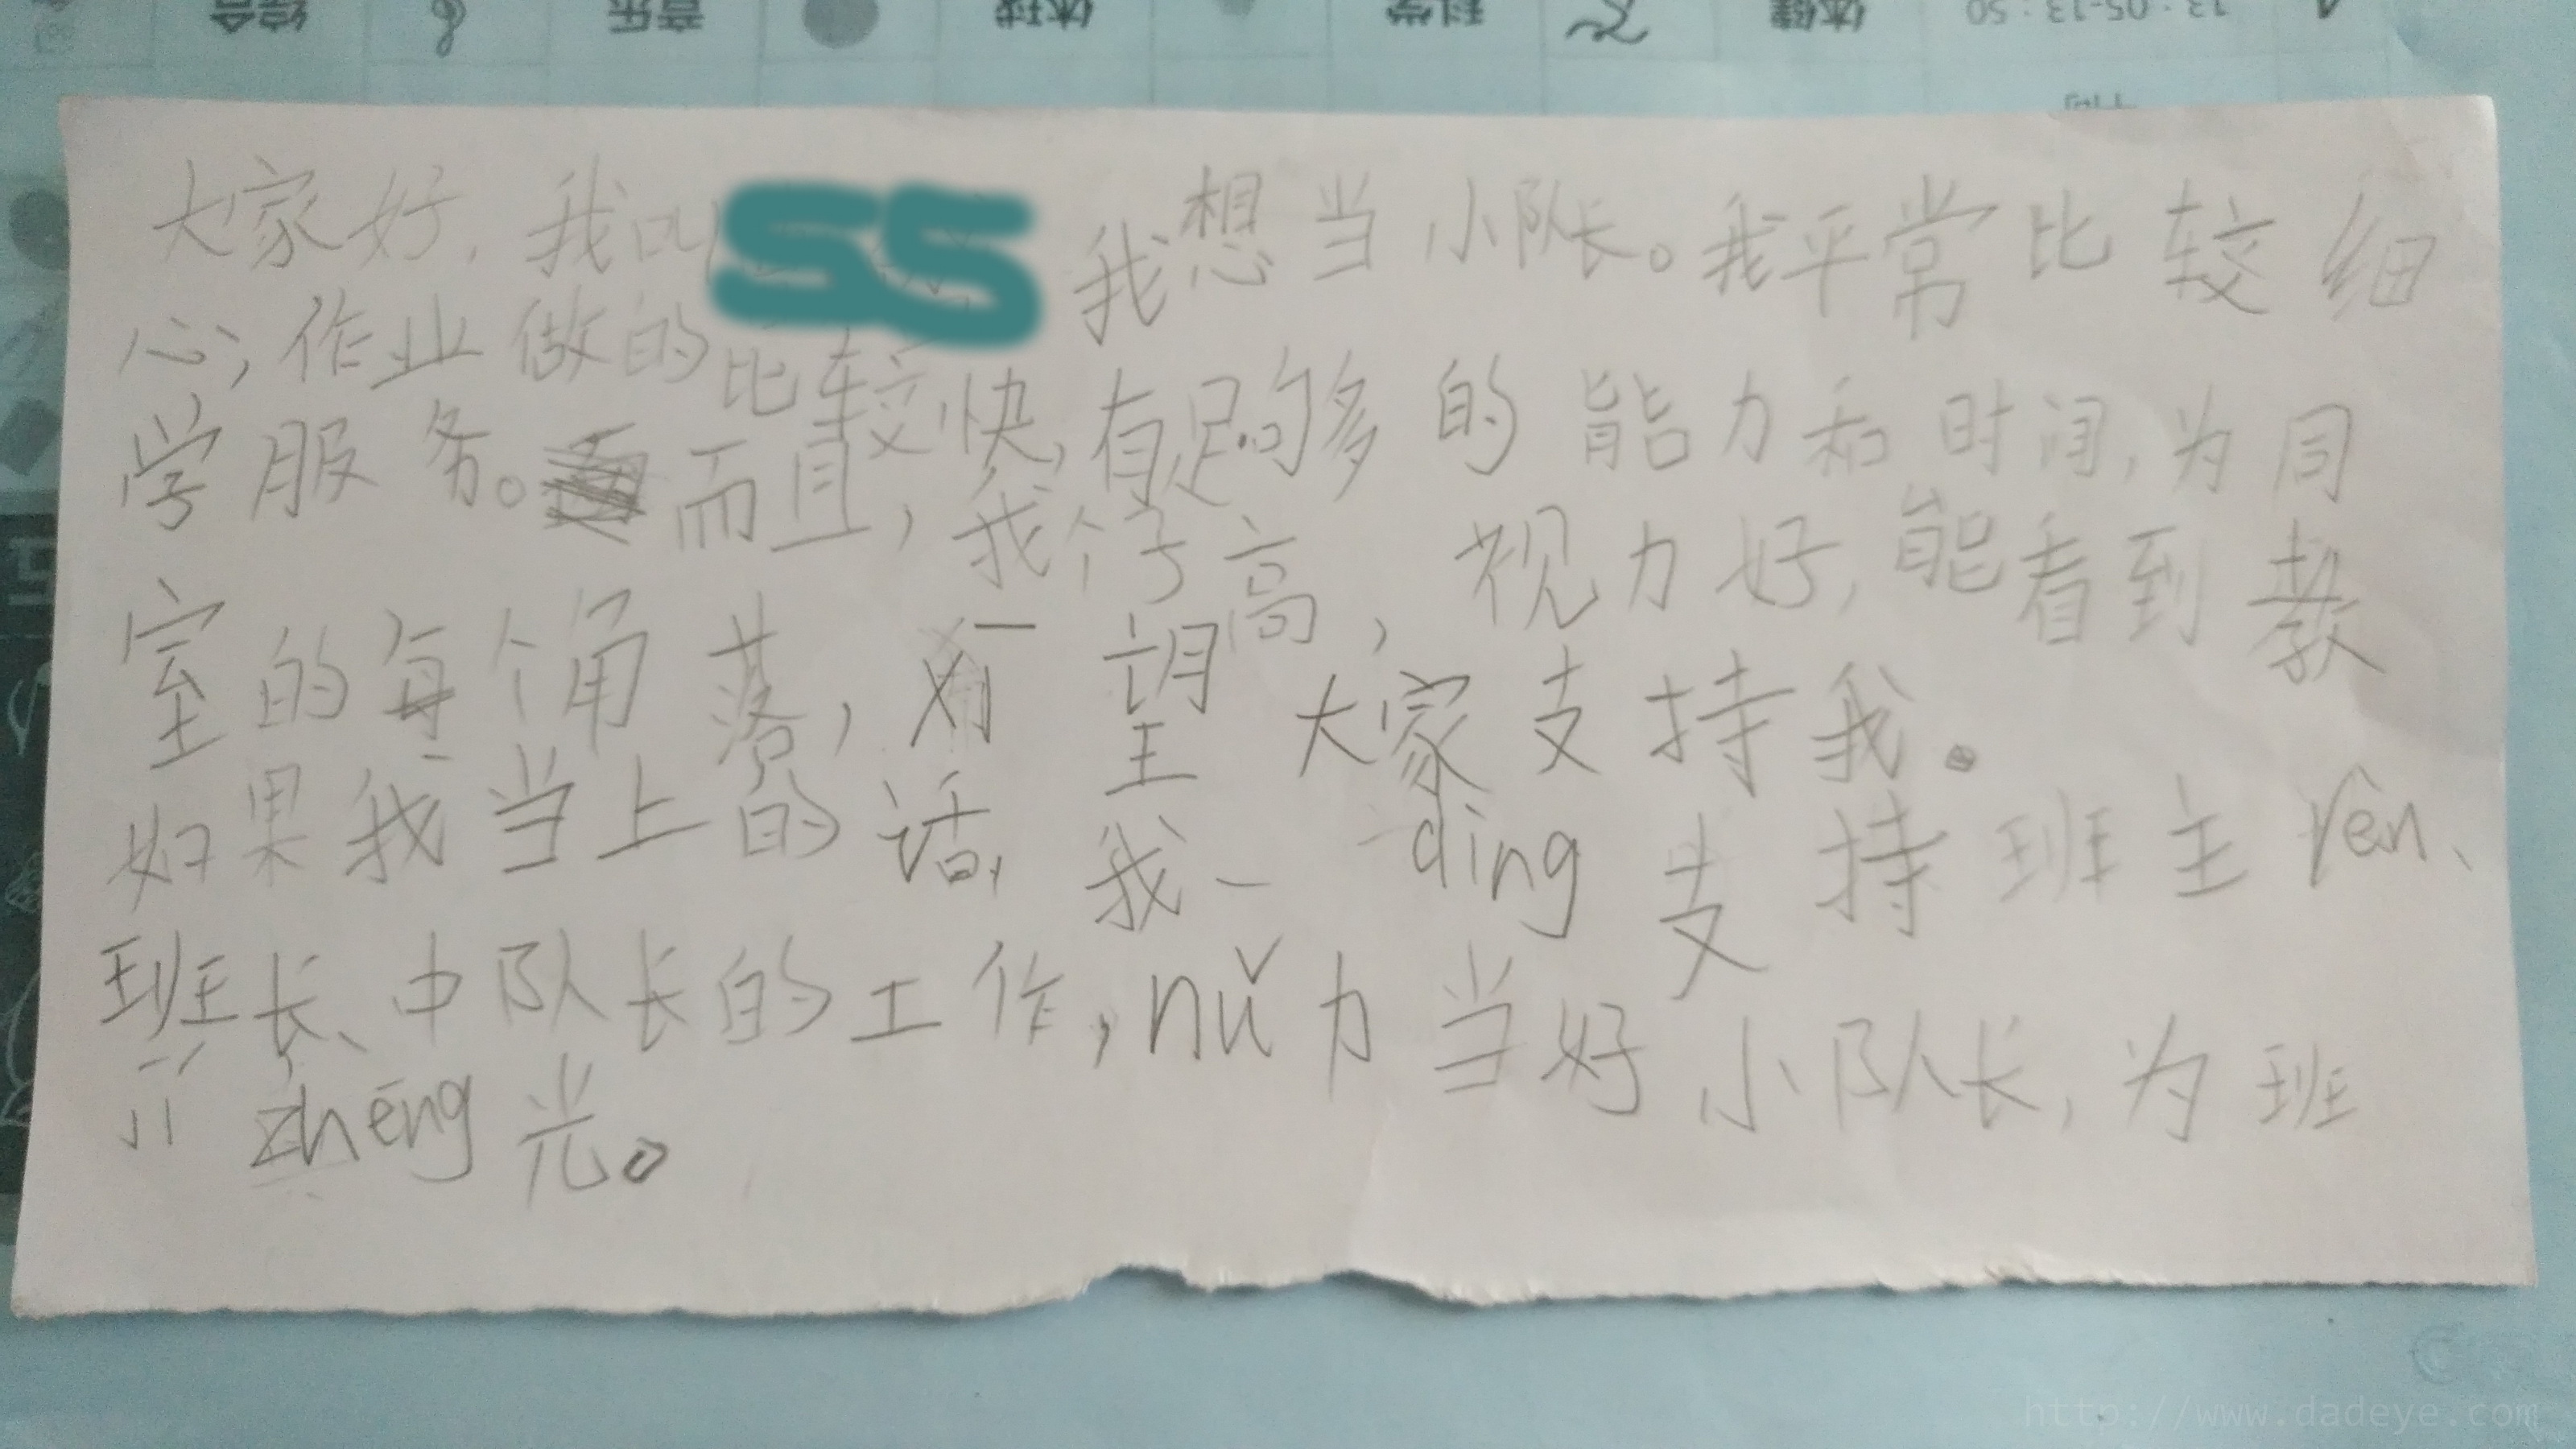 13:05-13:50 体健 科学 体球 音乐 综合
大家好,我叫 我想当小队长。我平常比较细
心,作业做的比较快,有足够多的能力和时间,为同
学服务。而且,我个子高,视力好,能看到教
室的每个角落,希望大家支持我。
如果我当上的话,我一ding支持班主rên、
班长、中队长的工作,nǔ力当好小队长,为班
zhēng光。
http://www.dadeye.com